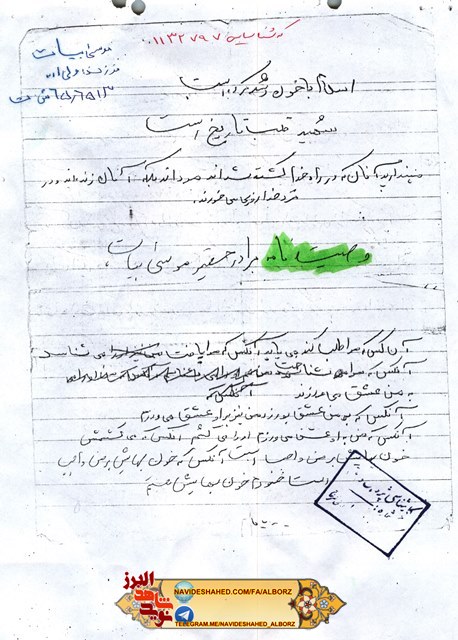 کد شناسایی ۱۱۳۲۷۹۷
موسی بیات
فرزند ولی اله
اسلام با خون رشد کرده است
شهید قلب تاریخ است
مپندارید آنان که در راه خدا کشته شده اند مرده اند بلکه آنان زنده اند و در
نزد خدا روزی می خورند.
وصیت نامه برادر حقیر موسی بیات
آن کس که مرا طلب کند می یابد آنکس که مرا یافت می شناسد
آنکس که مرا شناخت
به من عشق می ورزد
آنکس که به من عشق بورزد من نیز به او عشق می ورزم
آنکس که من به او عشق می ورزم او را می کشم آنکس که می کشمش
خون بهایش بر من واجب است آنکس که خون بهایش بر من واجب
است خودم خون بهایش هستم
البرز
نوید شاهد
NAVIDESHAHED.COM/FA/ALBORZ
TELEGRAM.ME/NAVIDESHAHED_ALBORZ